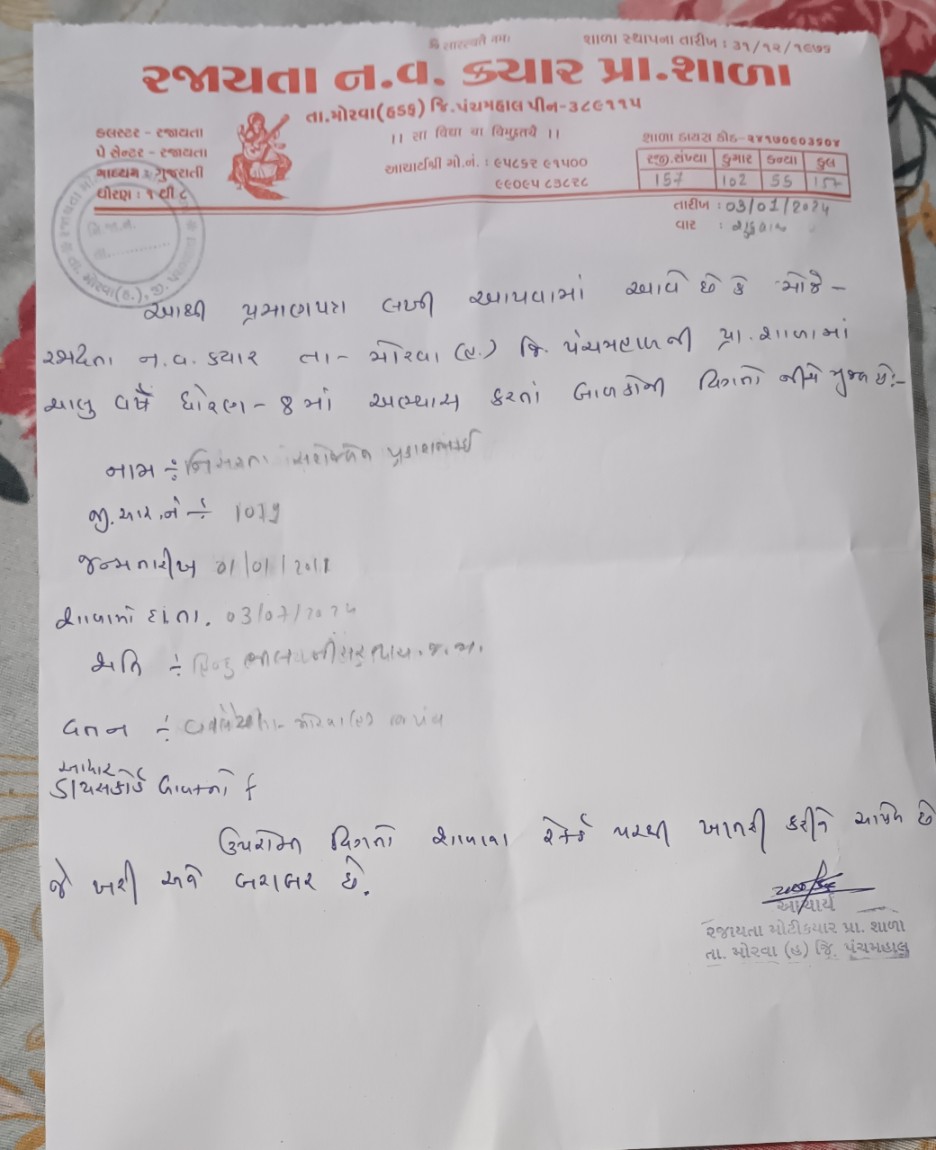 શાળા સ્થાપના તારીખ : ૩૧/૧૨/૧૯૭૫
રજાયતા ન.વ. કયાર પ્રા.શાળા
તા.મોરવા(હડફ) જિ.પંચમહાલ પીન-૩૮૯૧૧૫
।। सा विद्या या विमुक्तये ।।
ક્લસ્ટર - રજાયતા
પે સેન્ટર - રજાયતા
માધ્યમ : ગુજરાતી
ધોરણ : ૧ થી ૮
આચાર્યશ્રી મો.નં. : ૯૫૮૬૨ ૯૧૫૦૦
૯૯૦૯૫ ૮૩૮૨૮
શાળા ડાયસ કોડ-૨૪૧૭૦૬૦૩૫૦૪
રજી.સંખ્યા કુમાર કન્યા કુલ
157 102 55 157
તારીખ : 03/01/2024
વાર :
આથી પ્રમાણપત્ર લખી આપવામાં આવે છે કે મોજે -
ન.વ. કયાર તા- મોરવા (હ.) જિ. પંચમહાલ ની પ્રા. શાળામાં
ચાલુ વર્ષે ધોરણ - 8 માં અભ્યાસ કરતાં બાળકોની વિગતો નીચે મુજબ છે:-
નામ :-
જી.આર.નં :-
જન્મ તારીખ 01/01/2011
શાળામાં દા.તા. 03/07/2024
જાતિ :- હિન્દુ
વતન :-
આધાર
ડાયસકોર્ડ
ઉપરોક્ત વિગતો શાળાના રેકર્ડ પરથી ખાતરી કરીને આપેલ છે
જે ખરી અને બરાબર છે.
આચાર્ય
રજાયતા મોટીકયાર પ્રા. શાળા
તા. મોરવા (હ) જિ. પંચમહાલ